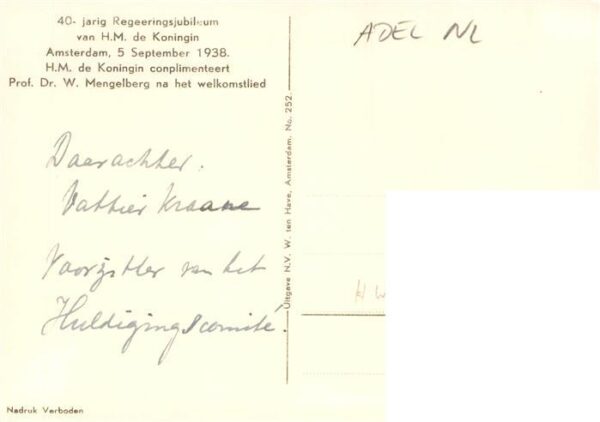 40- jarig Regeeringsjubileum
van H.M. de Koningin
Amsterdam, 5 September 1938.
H.M. de Koningin complimenteert
Prof. Dr. W. Mengelberg na het welkomstlied
Daarachter.
Vattier Kraane
Voorzitter van het
Huldigingscomité.
Nadruk Verboden
Uitgave N.V. W. ten Have, Amsterdam. No. 252.
ADEL NL
H W